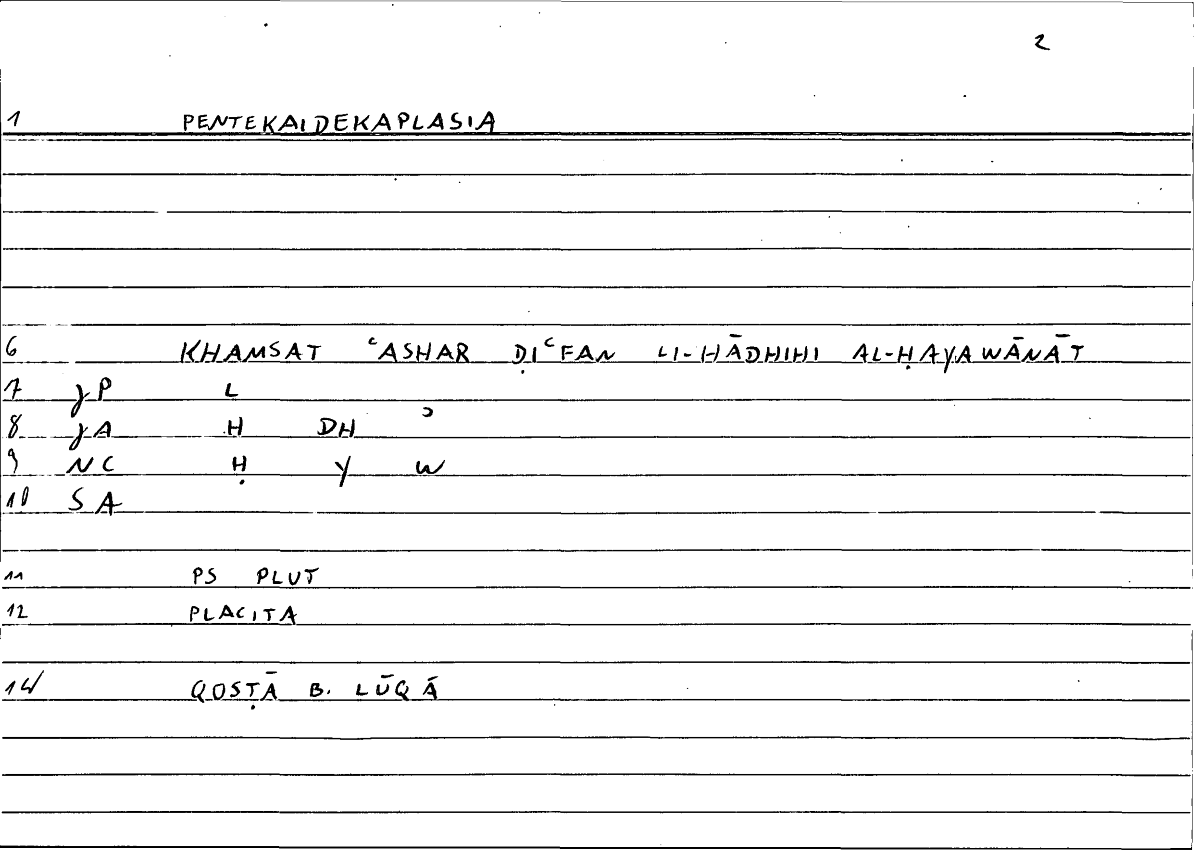 2
1 PENTEKAIDEKAPLASIA
6 KHAMSAT ʿASHAR ḌIʿFAN LI-HĀDHIHI AL-ḤAYAWĀNĀT
7 γP L
8 γA H DH ʾ
9 NC Ḥ Y W
10 SA
11 PS PLUT
12 PLACITA
14 QOSṬĀ B. LŪQĀ